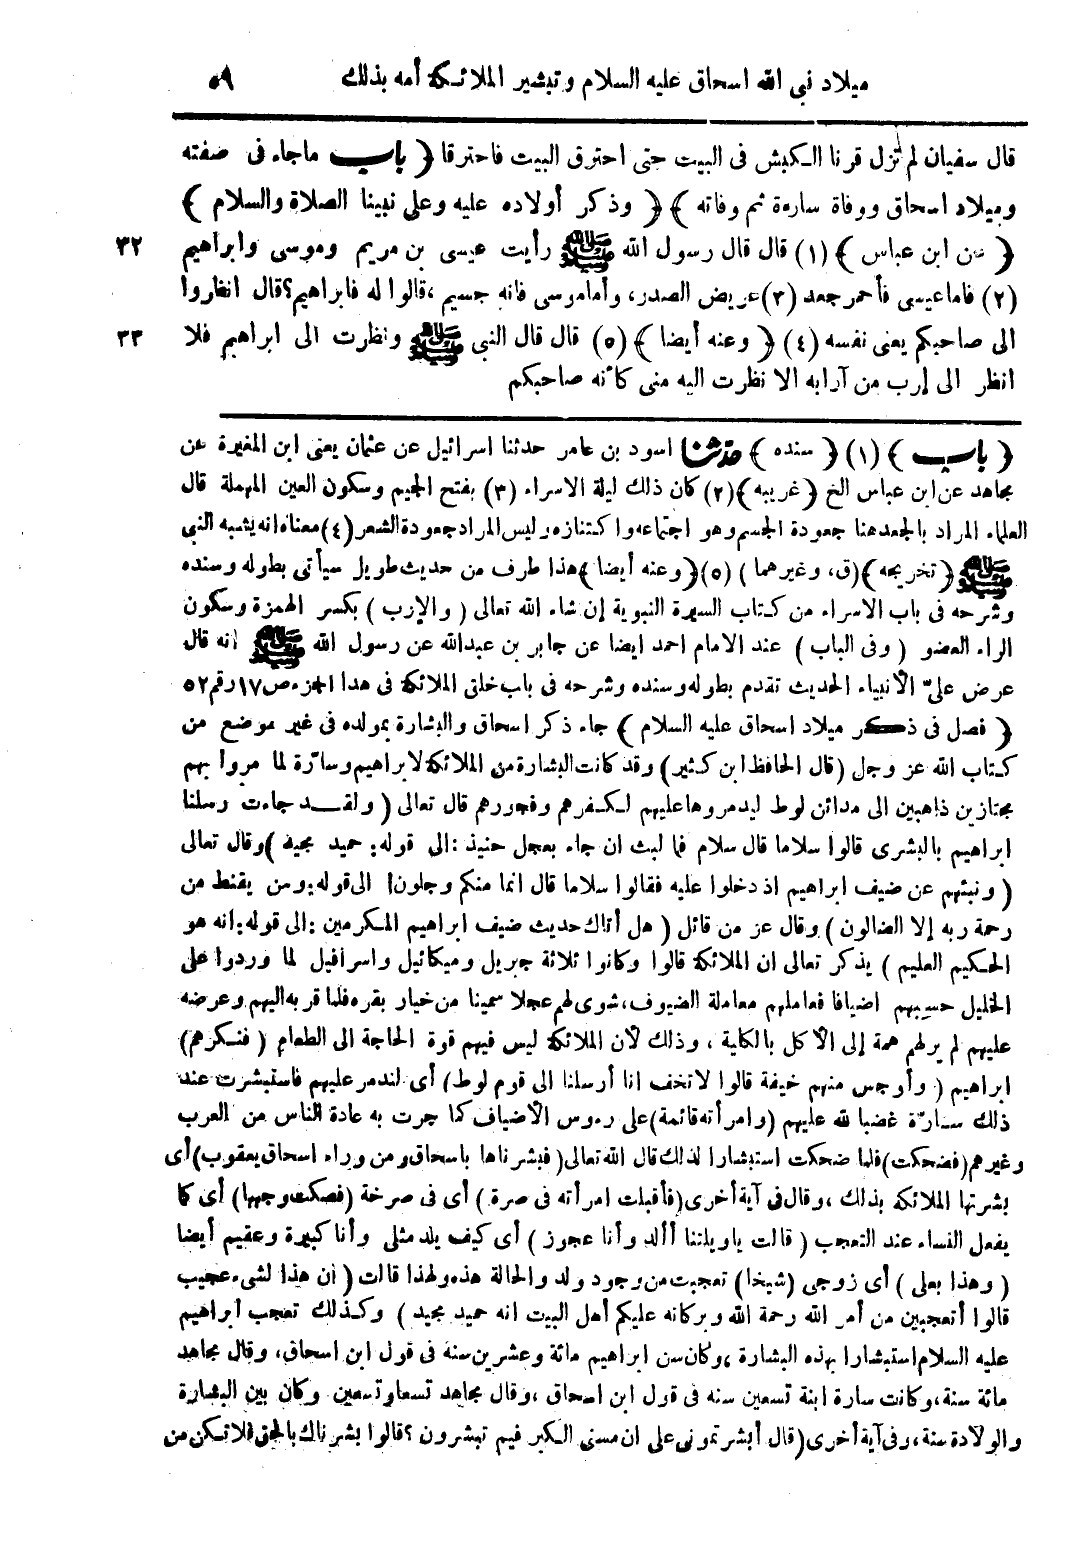 ميلاد نبى الله اسحاق عليه السلام وتبشير الملائكة أمه بذلك ٥٩
قال سفيان لم تزل قرنا الكبش فى البيت حتى احترق البيت فاحترقا ﴿ باب ماجاء فى صفته
وميلاد اسحاق ووفاة سارة ثم وفاته ﴾ ﴿ وذكر أولاده عليه وعلى نبينا الصلاة والسلام ﴾
﴿ عن ابن عباس ﴾ (١) قال قال رسول الله ﷺ رأيت عيسى بن مريم وموسى وابراهيم ٣٢
(٢) فاما عيسى فأحمر جعد (٣) عريض الصدر، وأما موسى فانه جسيم ،قالوا له فابراهيم؟ قال انظروا
الى صاحبكم يعنى نفسه (٤) ﴿ وعنه أيضا ﴾ (٥) قال قال النبى ﷺ ونظرت الى ابراهيم فلا ٣٣
انظر الى إرب من آرابه الا نظرت اليه منى كأنه صاحبكم
﴿ باب ﴾ (١) ﴿ سنده ﴾ حدثنا اسود بن عامر حدثنا اسرائيل عن عثمان يعنى ابن المغيرة عن
مجاهد عن ابن عباس الخ ﴿ غريبه ﴾ (٢) كان ذلك ليلة الاسراء (٣) بفتح الجيم وسكون العين المهملة قال
العلماء المراد بالجعد هنا جعودة الجسم وهو اجتماعه واكتنازه وليس المراد جعودة الشعر (٤) معناه انه يشبه النبى
ﷺ ﴿ تخريجه ﴾ (ق، وغيرهما ) (٥) ﴿ وعنه أيضا ﴾ هذا طرف من حديث طويل سيأتى بطوله وسنده
وشرحه فى باب الاسراء من كتاب السيرة النبوية إن شاء الله تعالى ( والإرب ) بكسر الهمزة وسكون
الراء العضو ( وفى الباب ) عند الامام احمد ايضا عن جابر بن عبدالله عن رسول الله ﷺ انه قال
عرض علىّ الأنبياء الحديث تقدم بطوله وسنده وشرحه فى باب خلق الملائكة فى هدا الجزء ص ١٧ رقم ٥٢
﴿ فصل فى ذكر ميلاد اسحاق عليه السلام ﴾ جاء ذكر اسحاق والبشارة بمولده فى غير موضع من
كتاب الله عز وجل (قال الحافظ ابن كثير) وقد كانت البشارة من الملائكة لابراهيم وسارّة لما مروا بهم
مجتازين ذاهبين الى مدائن لوط ليدمروها عليهم لكفرهم وفجورهم قال تعالى ( ولقد جاءت رسلنا
ابراهيم بالبشرى قالوا سلاما قال سلام فما لبث ان جاء بعجل حنيذ :الى قوله: حميد مجيد )وقال تعالى
( ونبئهم عن ضيف ابراهيم اذ دخلوا عليه فقالوا سلاما قال انما منكم وجلون: الى قوله: ومن يقنط من
رحمة ربه إلا الضالون ) وقال عز من قائل ( هل أتاك حديث ضيف ابراهيم المكرمين :الى قوله: انه هو
الحكيم العليم ) يذكر تعالى ان الملائكة قالوا وكانوا ثلاثة جبريل وميكائيل واسرافيل لما وردوا على
الخليل حسبهم اضيافا فعاملهم معاملة الضيوف، شوى لهم عجلا سمينا من خيار بقره فلما قربه اليهم وعرضه
عليهم لم ير لهم همة إلى الأكل بالكلية ، وذلك لأن الملائكة ليس فيهم قوة الحاجة الى الطعام ( فنكرهم)
ابراهيم ( وأوجس منهم خيفة قالوا لا تخف انا أرسلنا الى قوم لوط) أى لندمر عليهم فاستبشرت عند
ذلك سارّة غضبا لله عليهم (وامرأته قائمة) على رءوس الأضياف كما جرت به عادة الناس من العرب
وغيرهم (فضحكت) فلما ضحكت استبشارا لذلك قال الله تعالى( فبشرناها باسحاق ومن وراء اسحاق يعقوب) أى
بشرتها الملائكة بذلك ،وقال فى آية أخرى(فأقبلت امرأته فى صرة ) أى فى صرخة (فصكت وجهها) أى كما
يفعل النساء عند التعجب ( قالت ياويلتنا أألد وأنا عجوز ) أى كيف يلد مثلى وأنا كبيرة وعقيم أيضا
( وهذا بعلى ) أى زوجى (شيخا) تعجبت من وجود ولد والحالة هذه ولهذا قالت ( ان هذا لشىء عجيب
قالوا أتعجبين من أمر الله رحمة الله وبركاته عليكم أهل البيت انه حميد مجيد ) وكذلك تعجب ابراهيم
عليه السلام استبشارا بهذه البشارة ،وكان سن ابراهيم مائة وعشرين سنة فى قول ابن اسحاق، وقال مجاهد
مائة سنة، وكانت سارة ابنة تسعين سنه فى قول ابن اسحاق ،وقال مجاهد تسعا وتسعين وكان بين البشارة
والولادة سنة، وفى آية أخرى(قال أبشرتمونى على ان مسنى الكبر فبم تبشرون ؟ قالوا بشرناك بالحق فلا تكن من